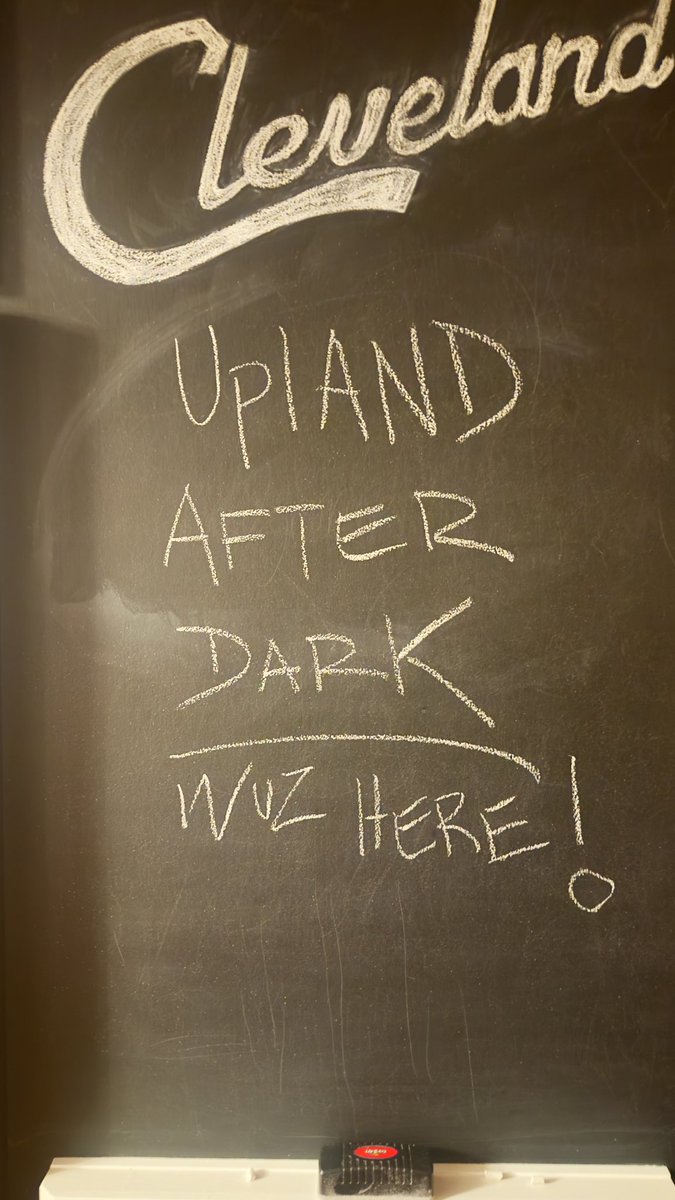 Cleveland
UplAND
AFTER
DARK
WUZ HERE!